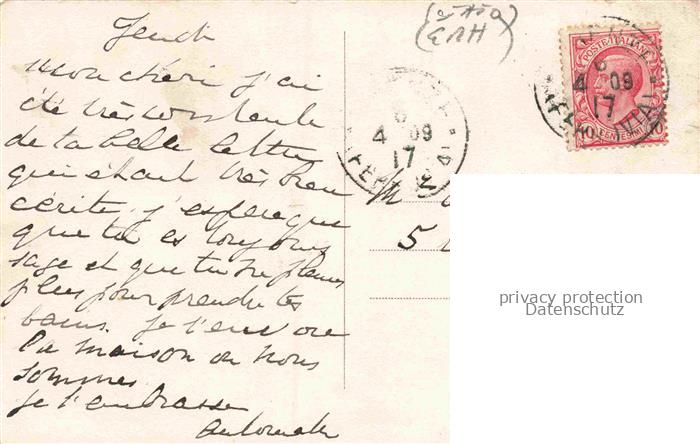 Jeudi
mon chéri j'ai
été très contente
de ta belle lettre
qui était très bien
écrite j'espère que
que tu es toujours
sage et que tu ne pleures
plus pour prendre tes
bains. je t'envoie
la maison ou nous
sommes
je t'embrasse
POSTE ITALIANE
10
CENTESIMI
10
6
4 09
17
6
4 09
17
M
5
privacy protection
Datenschutz